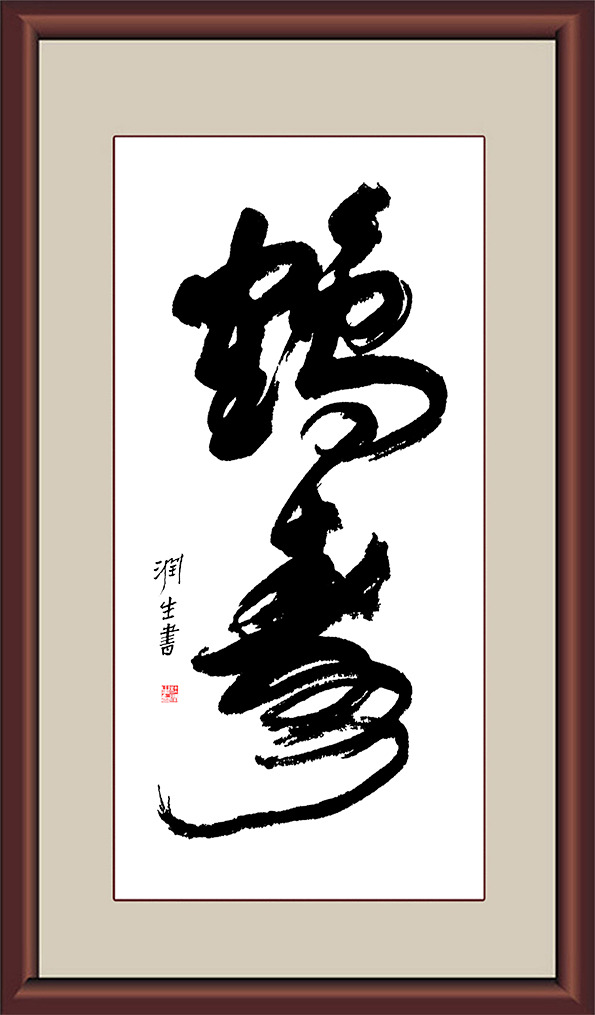 鹤寿
润生書